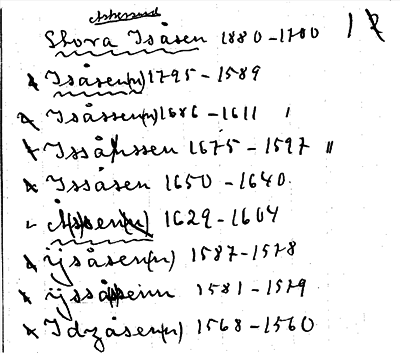 Stora Isåsen 1880-1700 1
Isåsen(n) 1795-1589
Isåssen(n) 1686-1611 ı
Issåssen 1675-1597 ıı
Issåsen 1650-1640
1629-1604
ijsåsen(n) 1587-1578
1581-1579
Idzåsen(n) 1568-1560